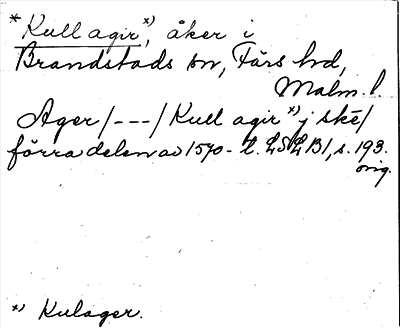 * Kull agir,ˣ⁾ åker i
Brandstads sn, Färs hd,
Malm. l.
Ager /---/ Kull agir ˣ⁾ j skē/
förra delen av 1570- t. LSLB1, s. 193.
orig.
ˣ⁾ Kulager.